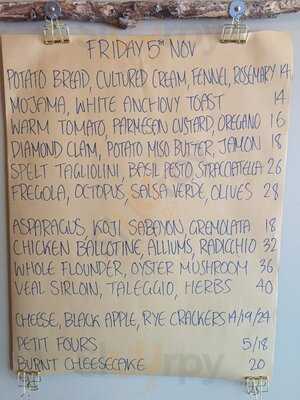 FRIDAY 5TH NOV
POTATO BREAD, CULTURED CREAM, FENNEL, ROSEMARY 14
MOJAMA, WHITE ANCHOVY TOAST 14
WARM TOMATO, PARMESEN CUSTARD, OREGANO 16
DIAMOND CLAM, POTATO MISO BUTTER, JAMON 18
SPELT TAGLIOLINI, BASIL PESTO, STRACCIATELLA 26
FREGOLA, OCTOPUS, SALSA VERDE, OLIVES 28
ASPARAGUS, KOJI SABAYON, GREMOLATA 18
CHICKEN BALLOTINE, ALLIUMS, RADICCHIO 32
WHOLE FLOUNDER, OYSTER MUSHROOM 36
VEAL SIRLOIN, TALEGGIO, HERBS 40
CHEESE, BLACK APPLE, RYE CRACKERS 14/19/24
PETIT FOURS 5/18
BURNT CHEESECAKE 20